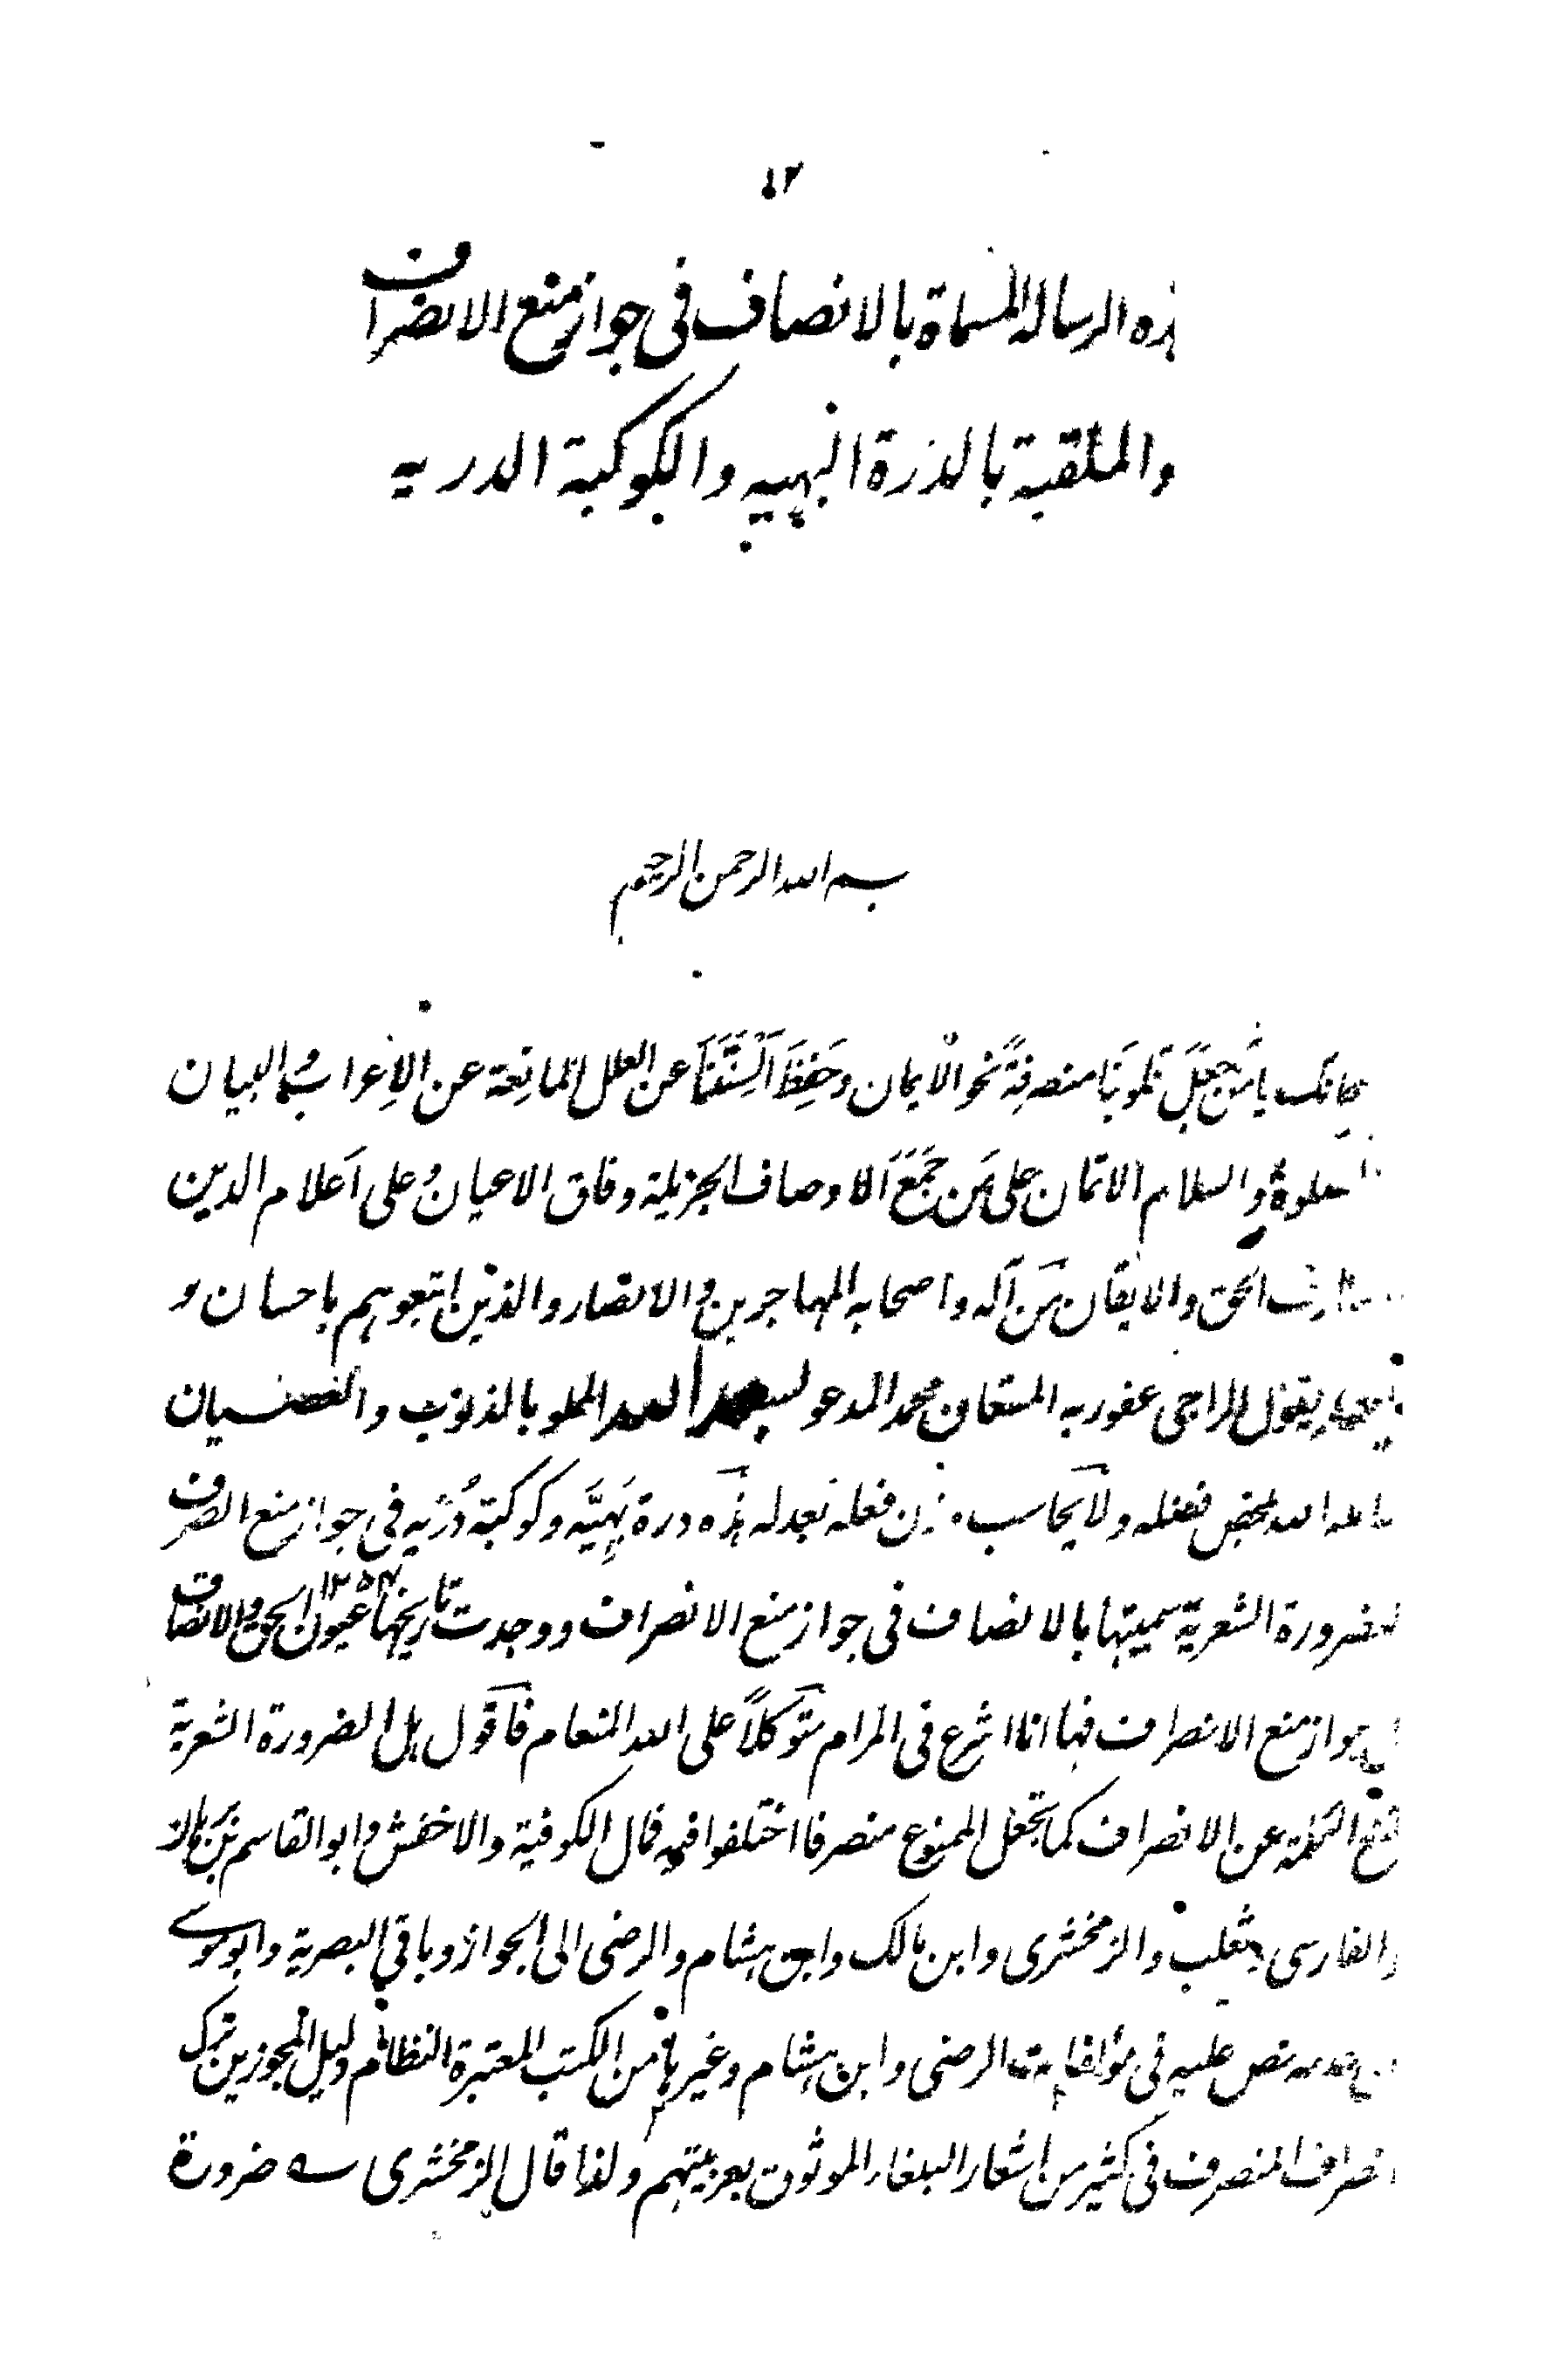 ١٢
هذه الرسالة المسماة بالانصاف في جواز منع الانصراف
والملقبة بالدرة البهية والكوكبة الدرية
بسم الله الرحمن الرحيم
يا من جعل قلوبنا منصرفة نحو الايمان وحفظ السنتنا عن العلل المانعة عن الاعراب والبيان
والسلام الاتمان على من جمع الاوصاف الجزيلة وفاق الاعيان وعلى اعلام الدين
الحق والايقان من آله واصحابه المهاجرين والانصار والذين اتبعوهم باحسان و
يقول الراجي عفو ربه المستعان محمد المدعو المملو بالذنوب والعصيان
الله بمحض فضله ولا يحاسب فعله بعدله هذه درة بهية وكوكبة درية في جواز منع الصرف
للضرورة الشعرية سميتها بالانصاف في جواز منع الانصراف ووجدت تاريخها عيون الحق والانصاف
جواز منع الانصراف فها انا اشرع في المرام متوكلاً على الله المنعام فاقول هل الضرورة الشعرية
تمنع الكلمة عن الانصراف كما تجعل الممنوع منصرفا اختلفوا فيه قال الكوفية والاخفش وابو القاسم بن برهان
والفارسي وثعلب والزمخشري وابن مالك وابن هشام والرضي الى الجواز وباقي البصرية وابو موسى
نص عليه في مؤلفات الرضي وابن هشام وغيرها من الكتب المعتبرة النظام ودليل المجوزين ترك
انصراف المنصرف في كثير من اشعار البلغاء الموثوق بعربيتهم ولذا قال الزمخشري سه ضرورة